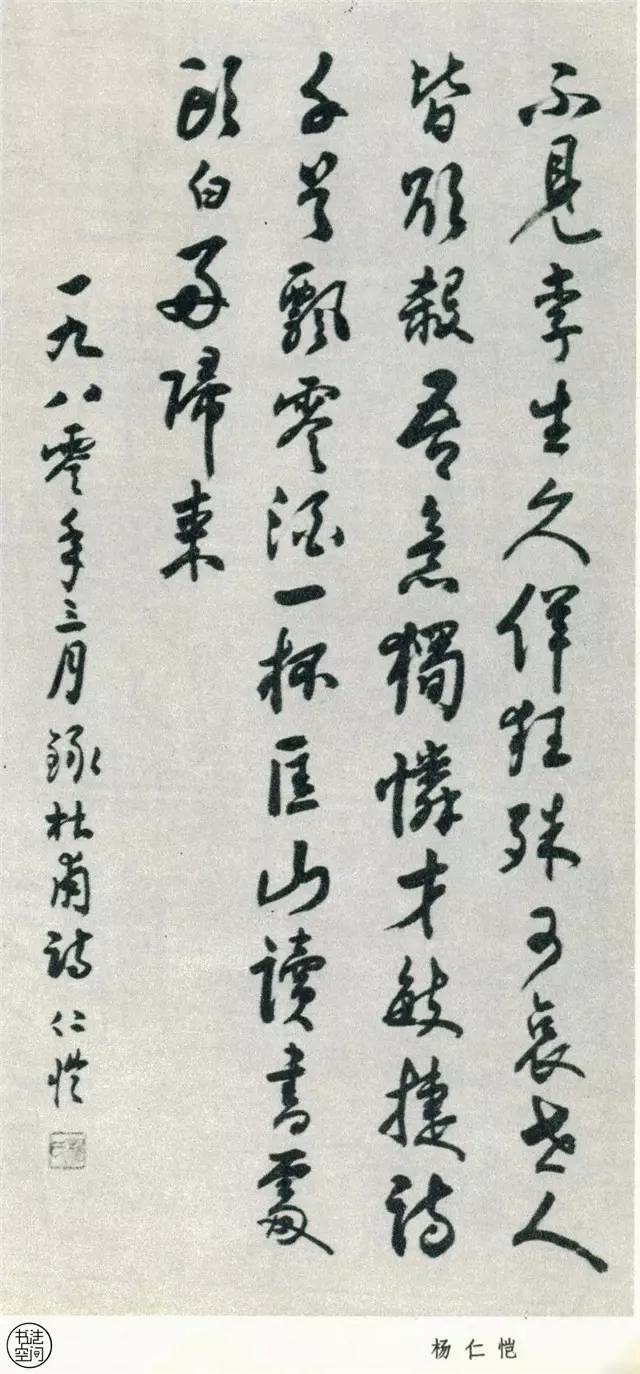 不見李生久佯狂殊可哀世人
皆欲殺吾意獨憐才敏捷詩
千首飄零酒一杯匡山讀書處
頭白好歸來
一九八零年三月錄杜甫詩仁愷
书法空间
杨仁恺